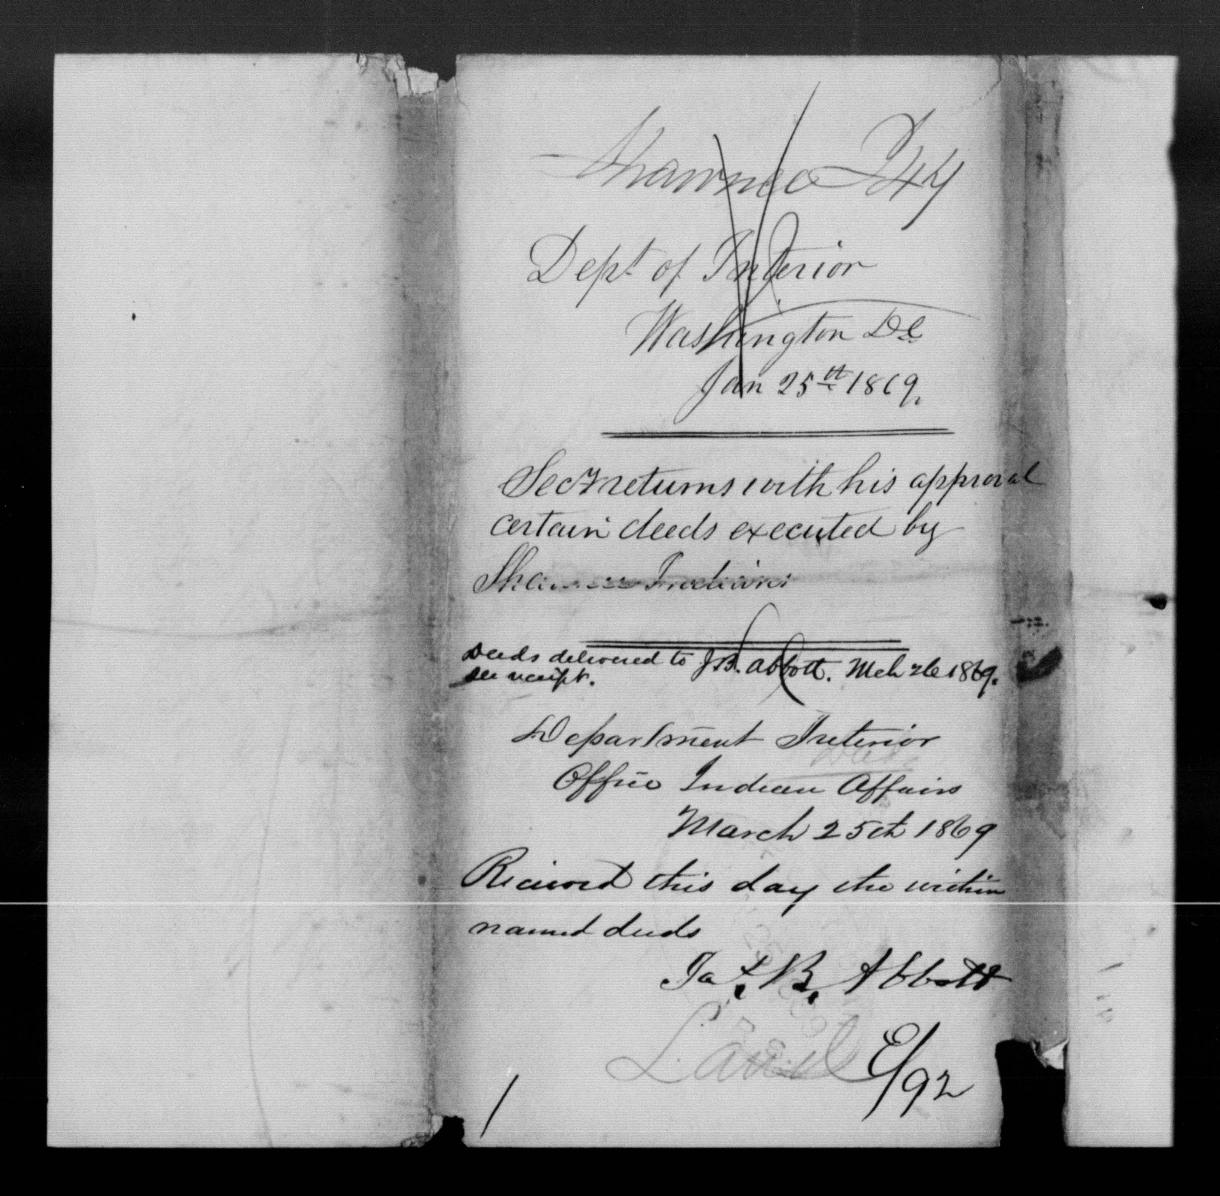 Shawnee I44
Dept of Interior
Washington DC
Jan 25th 1869.
Secy returns with his approval
certain deeds executed by
Shawnee Indians
Deeds delivered to J.B. Abbott. Mch 26 1869.
see receipt.
Department Interior
Office Indian Affairs
March 25th 1869
Recieved this day the within
named deeds
Jas. B. Abbott
Land
E/92